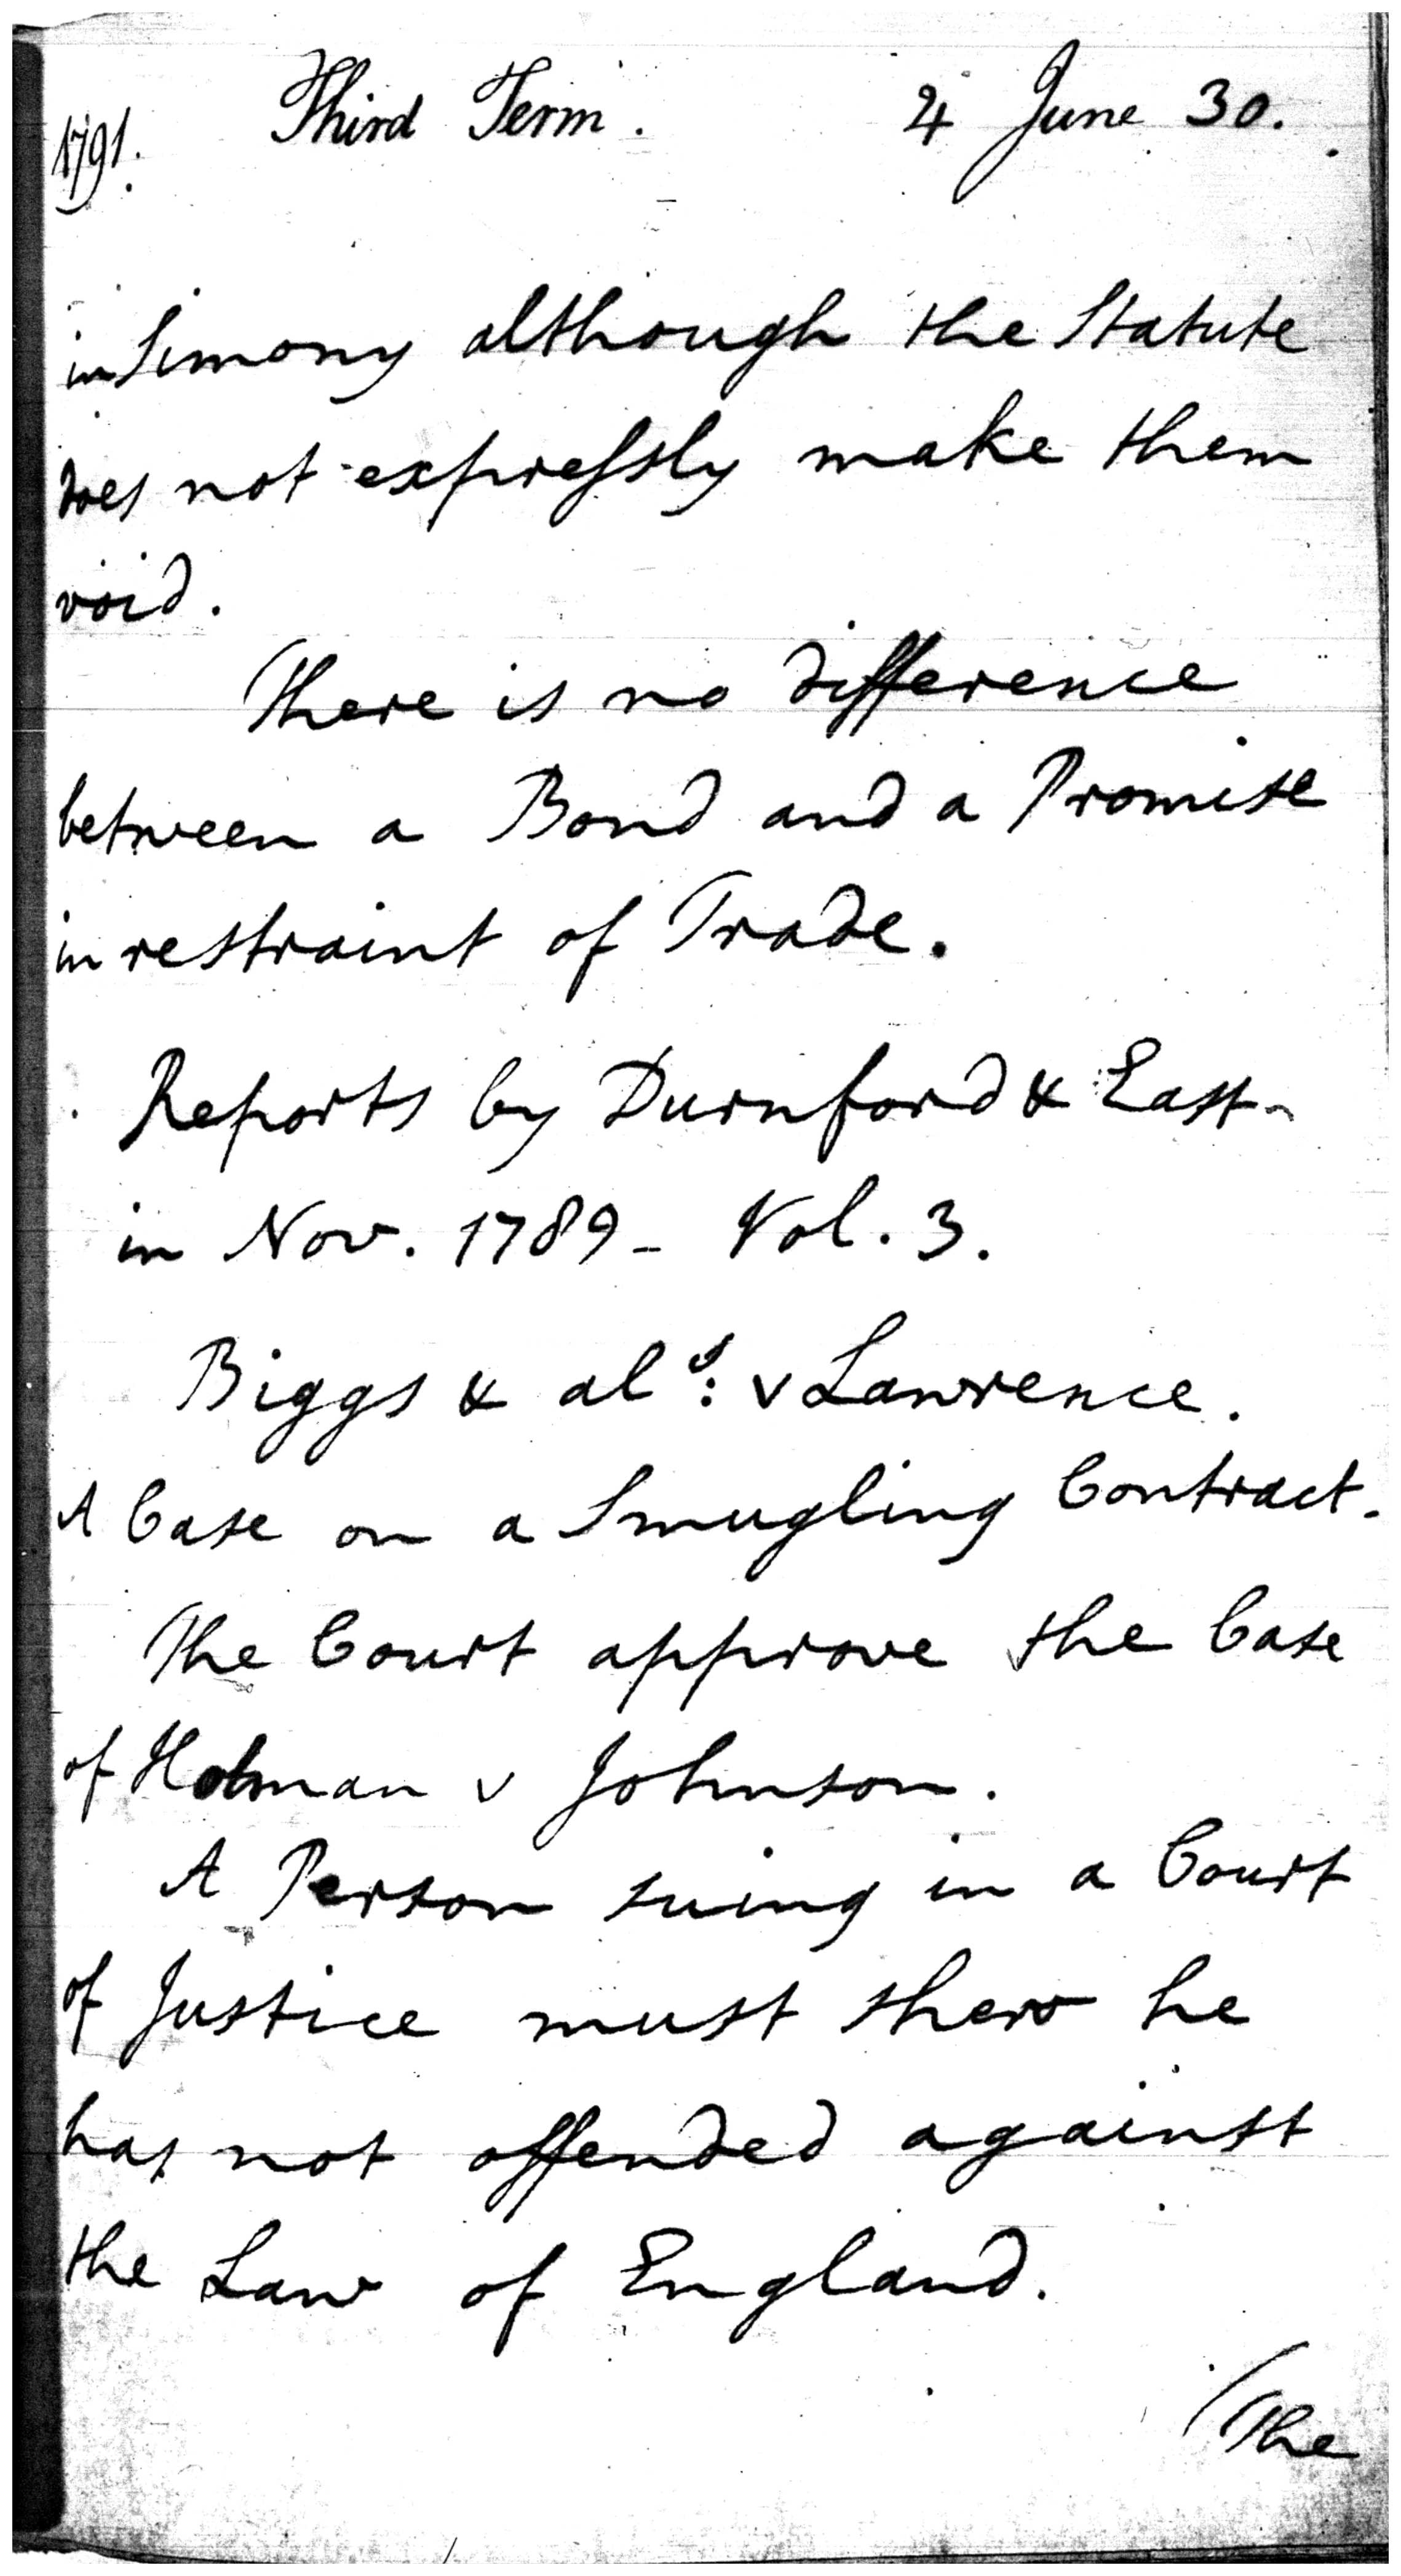 1791. Third Term. 4 June 30.
in Simony although the Statute
does not expressly make them
void.
There is no difference
between a Bond and a Promise
in restraint of Trade.
Reports by Durnford & East
in Nov. 1789 - Vol. 3.
Biggs & als: v Lawrence.
A Case on a Smugling Contract.
The Court approve the Case
of Holman v Johnson.
A Person suing in a Court
of Justice must shew he
has not offended against
the Law of England.
The